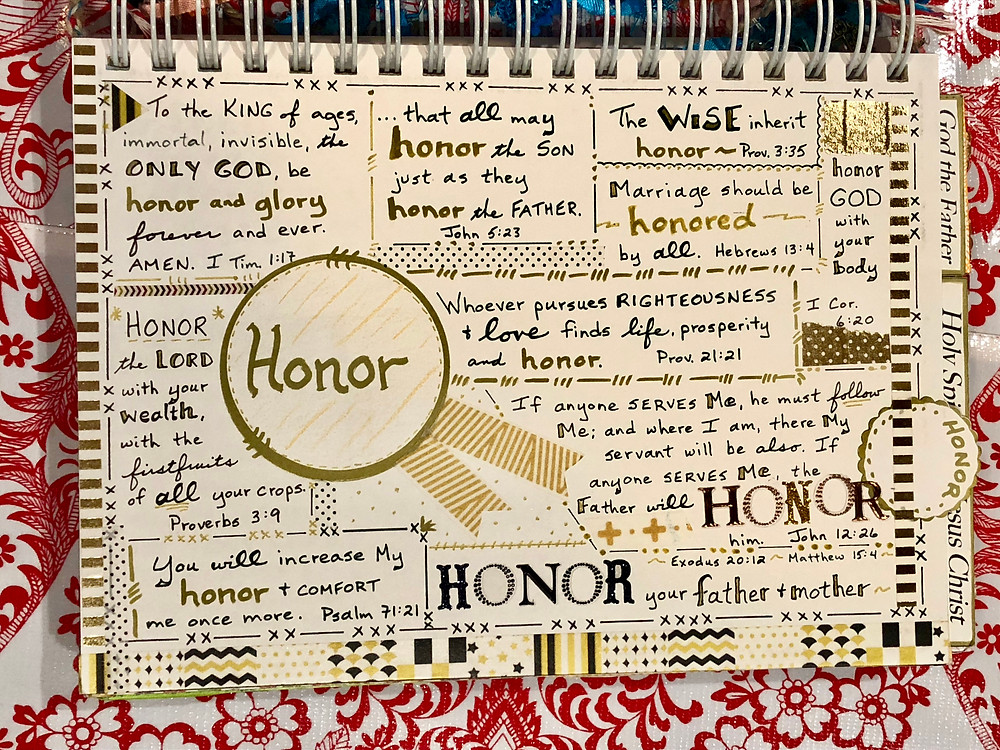 To the KING of ages,
immortal, invisible, the
ONLY GOD, be
honor and glory
forever and ever.
AMEN. I Tim. 1:17
... that all may
honor the SON
just as they
honor the FATHER.
John 5:23
The WISE inherit
honor ~ Prov. 3:35
Marriage should be
~ honored ~
by all. Hebrews 13:4
honor
GOD
with
your
body
I Cor.
6:20
* HONOR *
the LORD
with your
wealth,
with the
firstfruits
of all your crops.
Proverbs 3:9
Honor
Whoever pursues RIGHTEOUSNESS
+ love finds life, prosperity
and honor. Prov. 21:21
If anyone SERVES Me, he must follow
Me; and where I am, there My
servant will be also. If
anyone SERVES Me, the
Father will HONOR
him. John 12:26
You will increase My
honor + COMFORT
me once more. Psalm 71:21
~ Exodus 20:12 ~ Matthew 15:4 ~
HONOR your father + mother ~
God the Father
Holy
HONOR
Jesus Christ